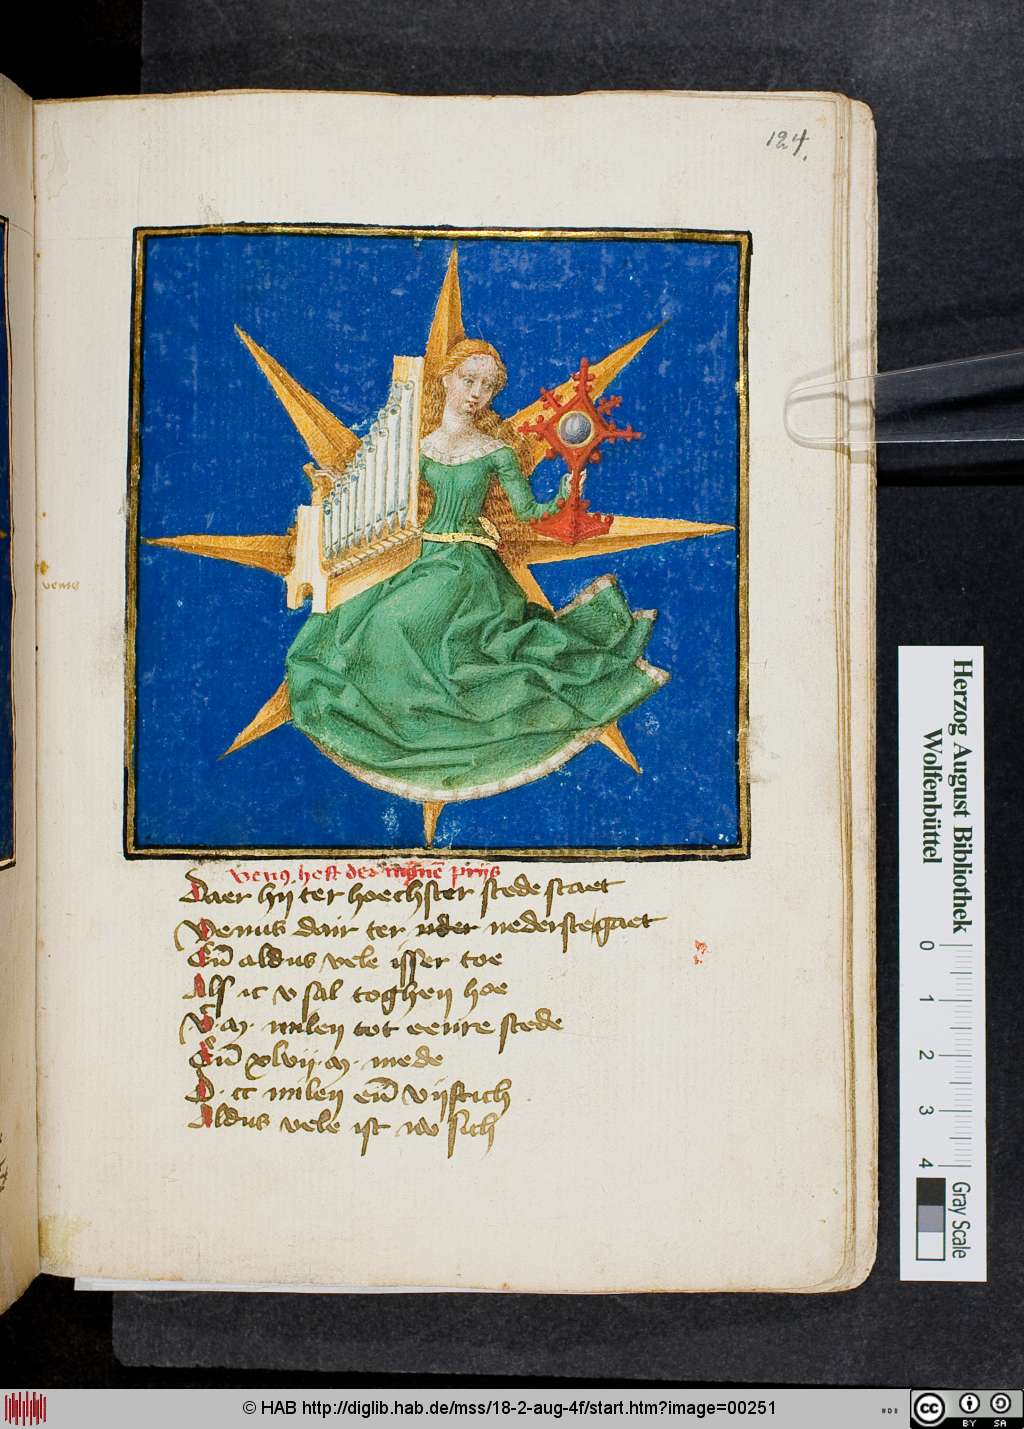 124.
venus
Venus heft der mynnē prijs
Daer hij ter hoechster stede staet
Venus dair ter neder stegaet
Eñ aldus vele isser toe
Als ic v sal toghen hoe
V. m. milen tot eenre stede
Eñ xlvij. m. mede
D. cc milen eñ vijftich
Aldus vele ist in sich
Herzog August Bibliothek
Wolfenbüttel
0 1 2 3 4
Gray Scale
© HAB http://diglib.hab.de/mss/18-2-aug-4f/start.htm?image=00251
cc
BY SA